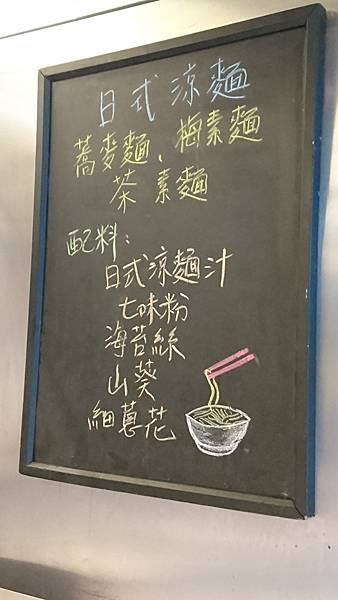 日式涼麵
蕎麥麵、梅素麵
茶素麵
配料：
日式涼麵汁
七味粉
海苔絲
山葵
細蔥花